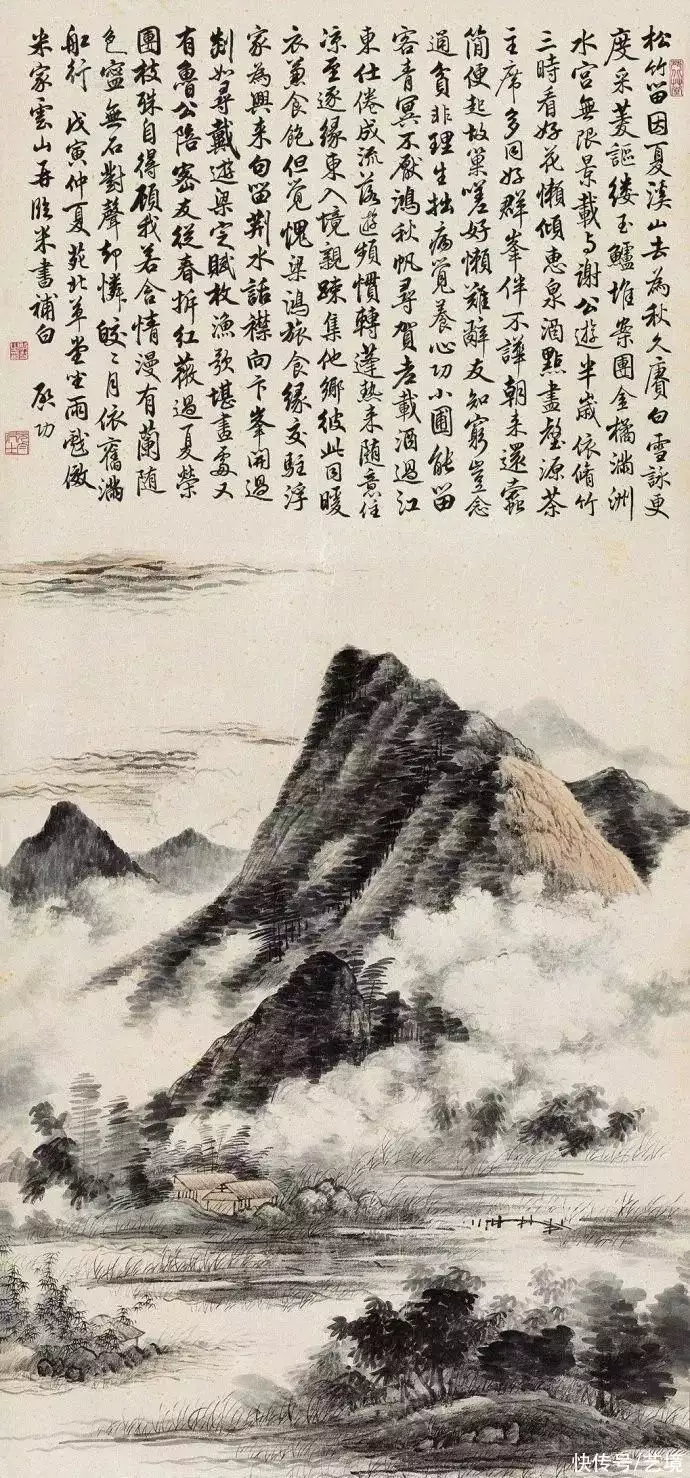 松竹留因夏溪山去為秋久賡白雪詠更
度采菱謳縷玉鱸堆案團金橘滿洲
水宮無限景載与謝公遊半歲依脩竹
三時看好花懶傾惠泉酒點盡壑源茶
主席多同好群峯伴不譁朝来還蠹
簡便起故巢嗟好懶難辭友知窮豈念
通貧非理生拙病覺養心功小圃能留
客青冥不厭鴻秋帆尋賀老載酒過江
東仕倦成流落遊頻慣轉蓬熱来随意住
凉至逐緣東入境親踈集他鄉彼此同暖
衣兼食飽但覺愧梁鴻旅食緣交駐浮
家為興来句留荆水話襟向卞峯開過
剡如尋戴遊梁定賦枚漁歌堪畫處又
有魯公陪密友從春拆紅薇過夏榮
團枝殊自得顧我若含情漫有蘭随
色寧無石對聲却憐皎〻月依舊滿
舡行　戊寅仲夏苑北草堂坐雨戲倣
米家雲山再臨米書補白　啟功
快传号/艺境